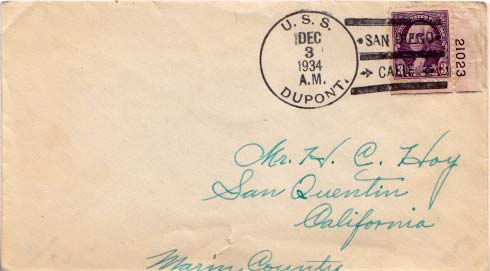 U. S. S.
DEC
3
1934
A.M.
DUPONT.
SAN DIEGO
CALIF
3
21023
Mr. H. C. Hoy
San Quentin
California
Marin County